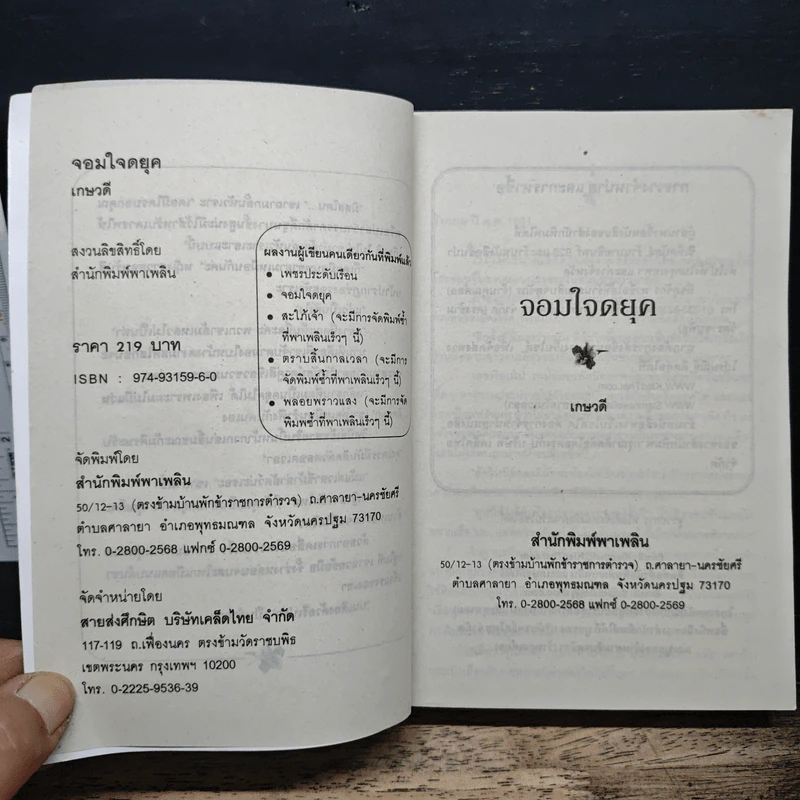 จอมใจดยุค
เกษวดี
สงวนลิขสิทธิ์โดย
สำนักพิมพ์พาเพลิน
ราคา 219 บาท
ISBN : 974-93159-6-0
ผลงานผู้เขียนคนเดียวกันที่พิมพ์แล้ว
• เพชรประดับเรือน
• จอมใจดยุค
• สะใภ้เจ้า (จะมีการจัดพิมพ์ซ้ำ
ที่พาเพลินเร็วๆ นี้)
• ตราบสิ้นกาลเวลา (จะมีการ
จัดพิมพ์ซ้ำที่พาเพลินเร็วๆ นี้)
• พลอยพราวแสง (จะมีการจัด
พิมพ์ซ้ำที่พาเพลินเร็วๆ นี้)
จัดพิมพ์โดย
สำนักพิมพ์พาเพลิน
50/12-13 (ตรงข้ามบ้านพักข้าราชการตำรวจ) ถ.ศาลายา-นครชัยศรี
ตำบลศาลายา อำเภอพุทธมณฑล จังหวัดนครปฐม 73170
โทร. 0-2800-2568 แฟกซ์ 0-2800-2569
จัดจำหน่ายโดย
สายส่งศึกษิต บริษัทเคล็ดไทย จำกัด
117-119 ถ.เฟื่องนคร ตรงข้ามวัดราชบพิธ
เขตพระนคร กรุงเทพฯ 10200
โทร. 0-2225-9536-39
จอมใจดยุค
เกษวดี
สำนักพิมพ์พาเพลิน
50/12-13 (ตรงข้ามบ้านพักข้าราชการตำรวจ) ถ.ศาลายา-นครชัยศรี
ตำบลศาลายา อำเภอพุทธมณฑล จังหวัดนครปฐม 73170
โทร. 0-2800-2568 แฟกซ์ 0-2800-2569